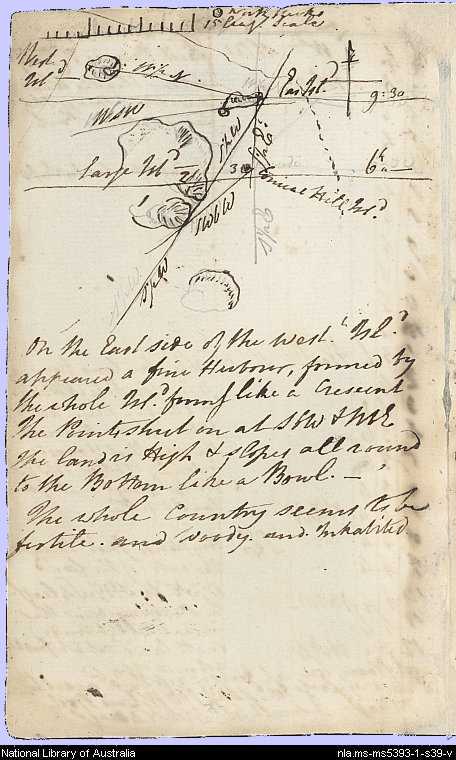 15 Leag. Scale
West Isl.d
WSW
East Isl.d
9:30
Large Isl.d
3
6h
Conical Hill Isl.d
SWbW
On the East side of the West.n Isl.d
appeared a fine Harbour, formed by
the whole Isl.d form.g like a Crescent
The Points shut on at SSW & NNE
The land is High & slopes all round
to the Bottom like a Bowl. —
The whole Country seems to be
fertile. and woody. and. Inhabited
National Library of Australia
nla.ms-ms5393-1-s39-v